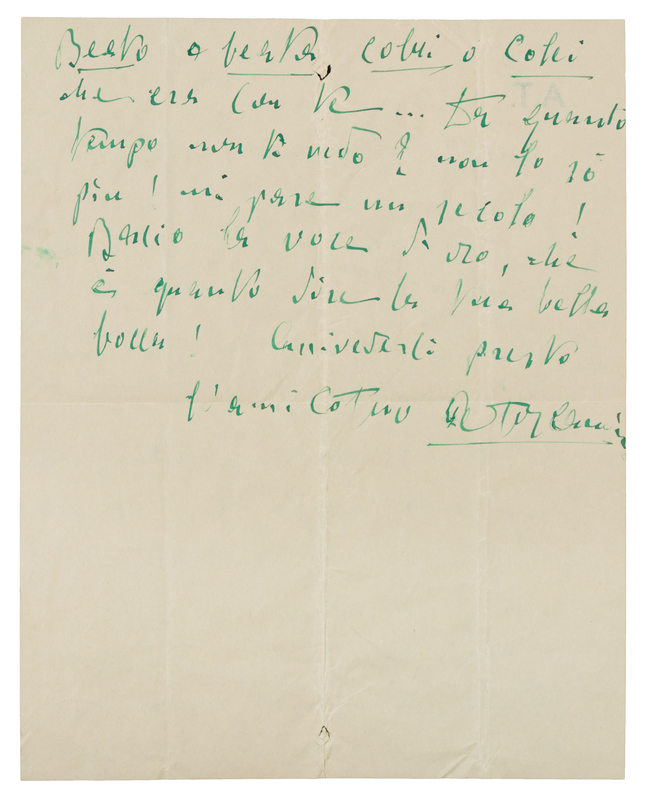 Beato o beata, colui o colei
che era con te ... Da quanto
tempo non ti vedo? non lo sò
più! mi pare un secolo!
Bacio la voce d'oro, che
è quanto dire la tua bella
bocca! Arrivederti presto
l'amico tuo AToscanini
A.T.